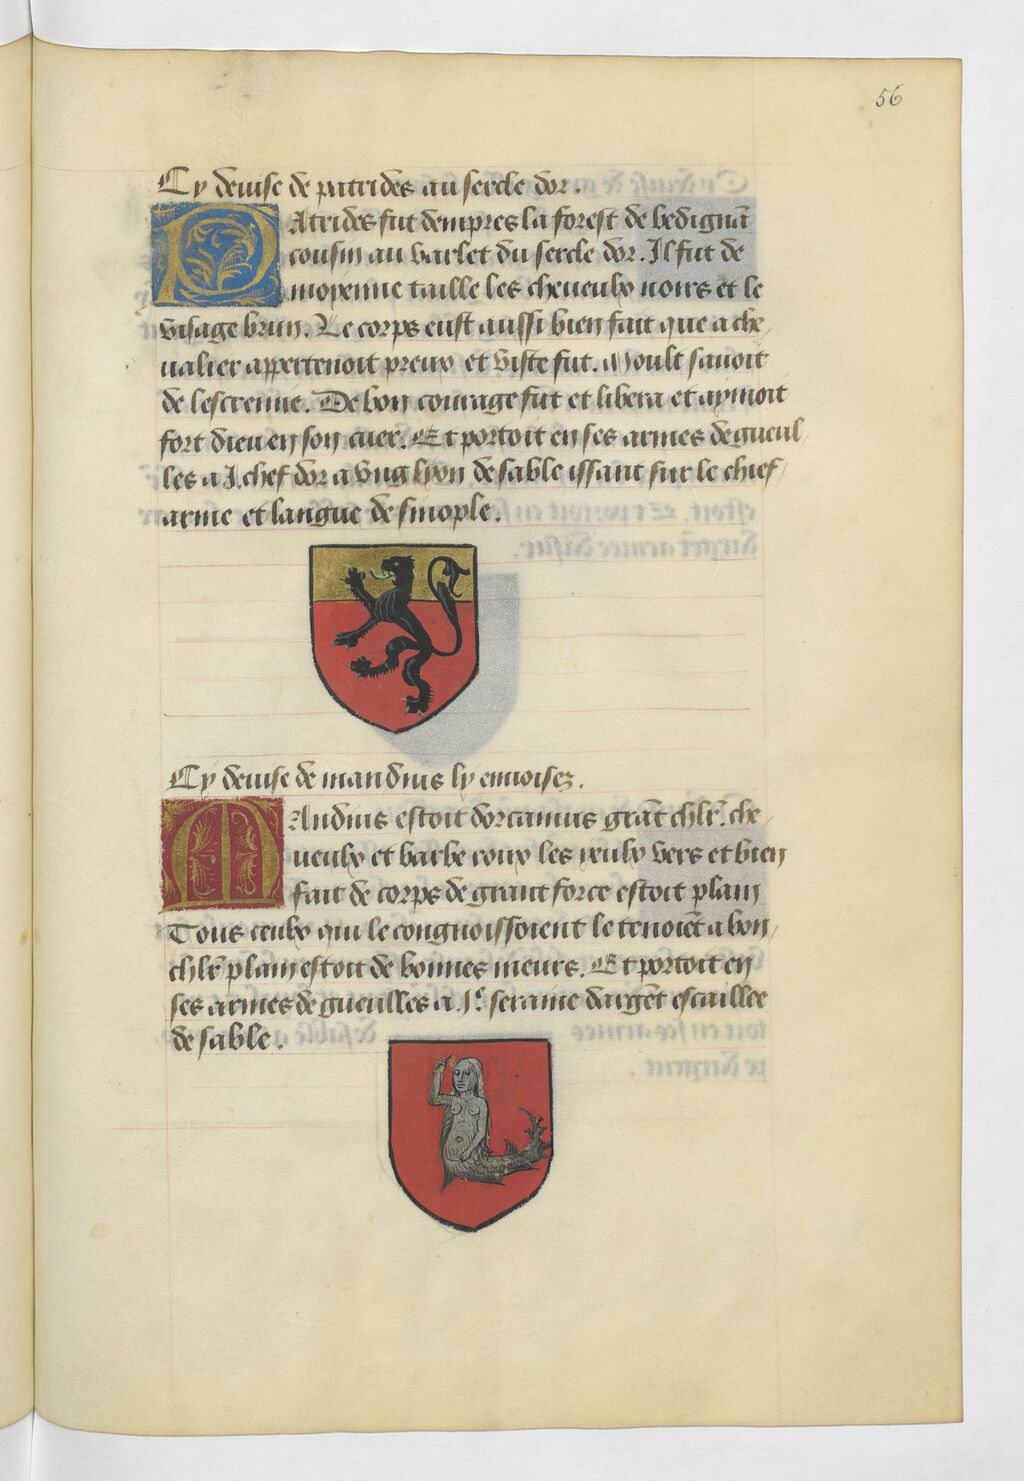 56
Cy deuise de patrides au sercle dor.
Patrides fut dempres la forest de bedignā
cousin au varlet du sercle dor. Il fut de
moyenne taille les cheueulx noirs et le
visage brun. Le corps eust aussi bien fait que a che
ualier appertenoit preux et viste fut. Moult sauoit
de lescremie. De bon courage fut et libera et aymoit
fort dieu en son cuer. Et portoit en ses armes de gueul
les a .I. chef dor a vng lyon de sable issant sur le chief
arme et langue de sinople.
Cy deuise de mandius ly enuoisez.
Mandius estoit dorcanius grāt chlr̄. che
ueulx et barbe roux les yeulx vers et bien
fait de corps de grant force estoit plain
Tous ceulx qui le congnoissoient le tenoiēt a bon
chlr̄ plain estoit de bonnes meurs. Et portoit en
ses armes de gueulles a .Iᵉ. seraine dargēt escaillee
de sable.